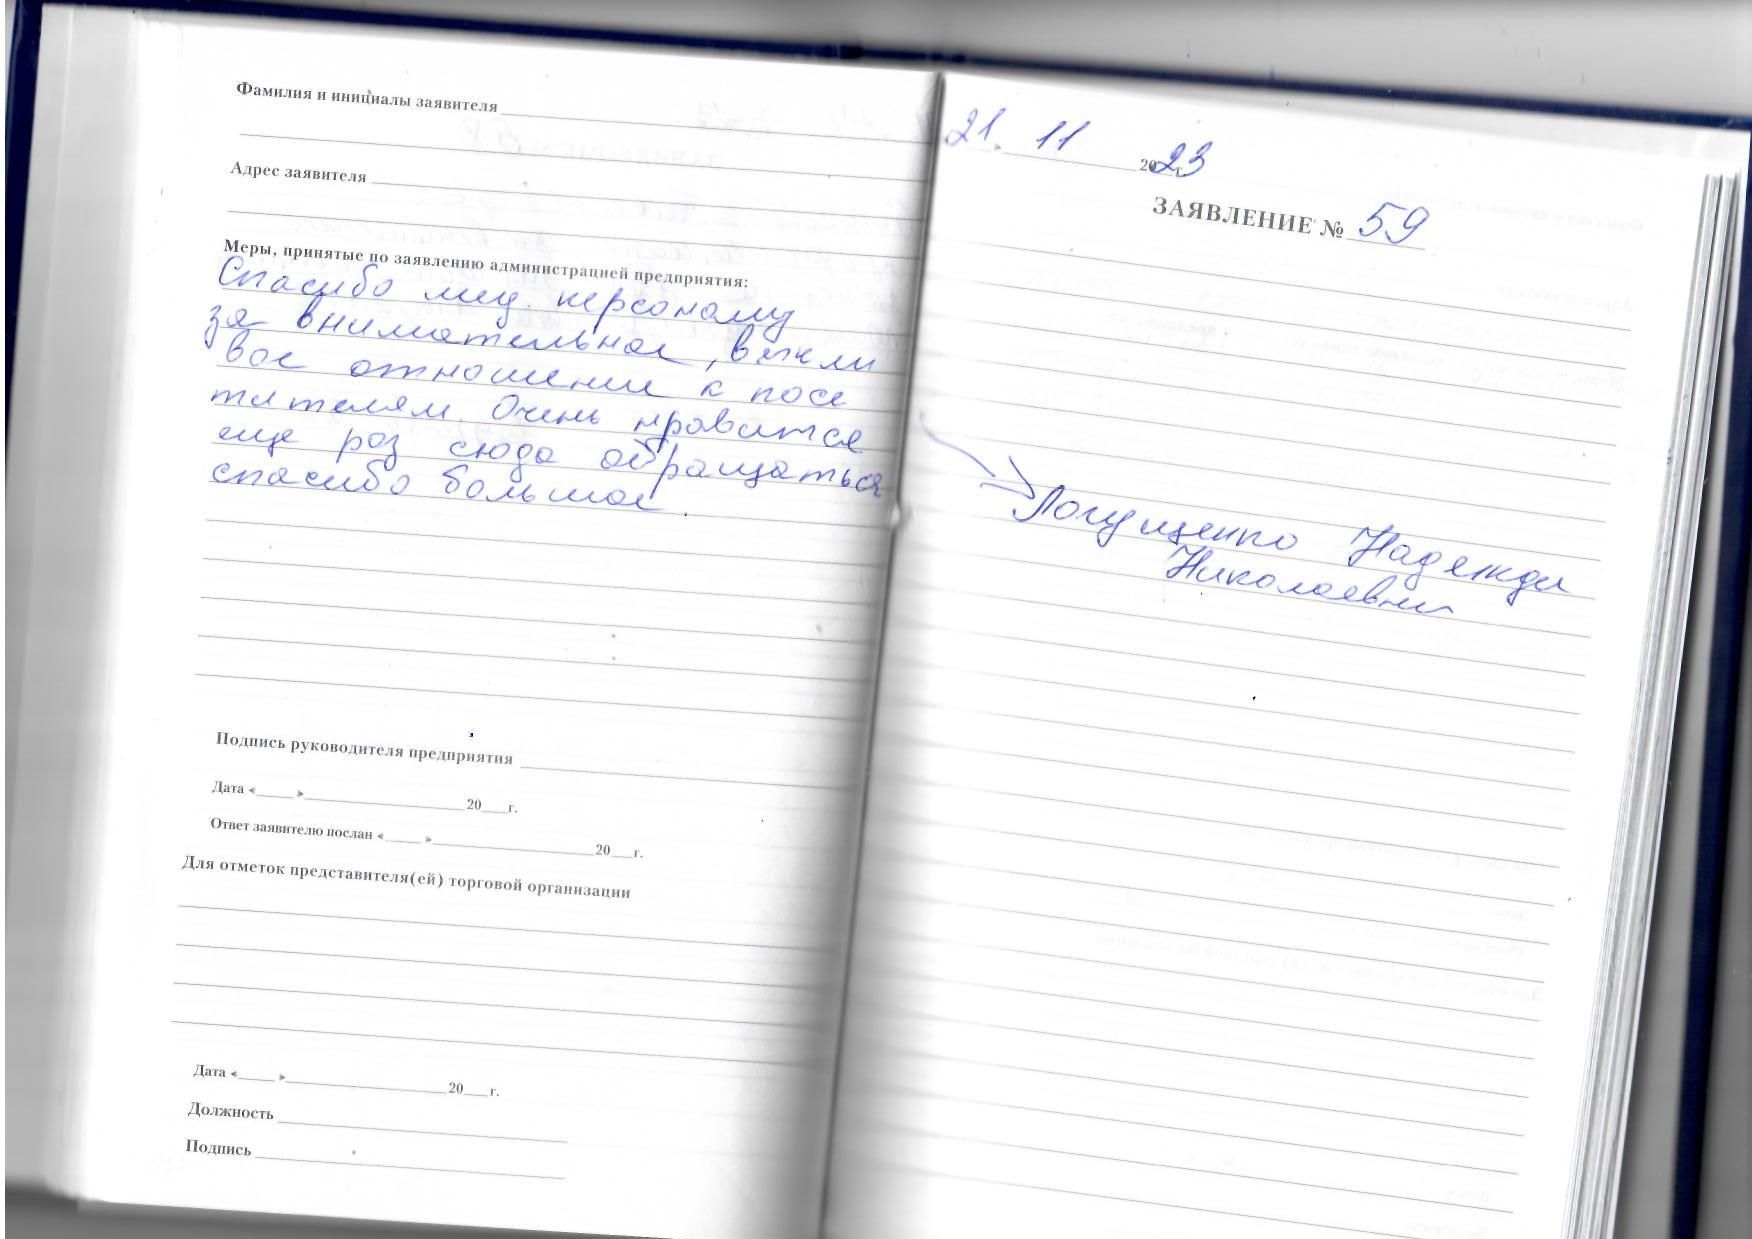 Фамилия и инициалы заявителя
Адрес заявителя
Меры, принятые по заявлению администрацией предприятия:
Спасибо мед. персоналу
за внимательное, вежли
вое отношение к посе
тителям. Очень нравится
еще раз сюда обращаться
спасибо большое.
Подпись руководителя предприятия
Дата « » 20 г.
Ответ заявителю послан « » 20 г.
Для отметок представителя(ей) торговой организации
Дата « » 20 г.
Должность
Подпись
21 » 11 2023 г.
ЗАЯВЛЕНИЕ № 59
Надежды
Николаевны